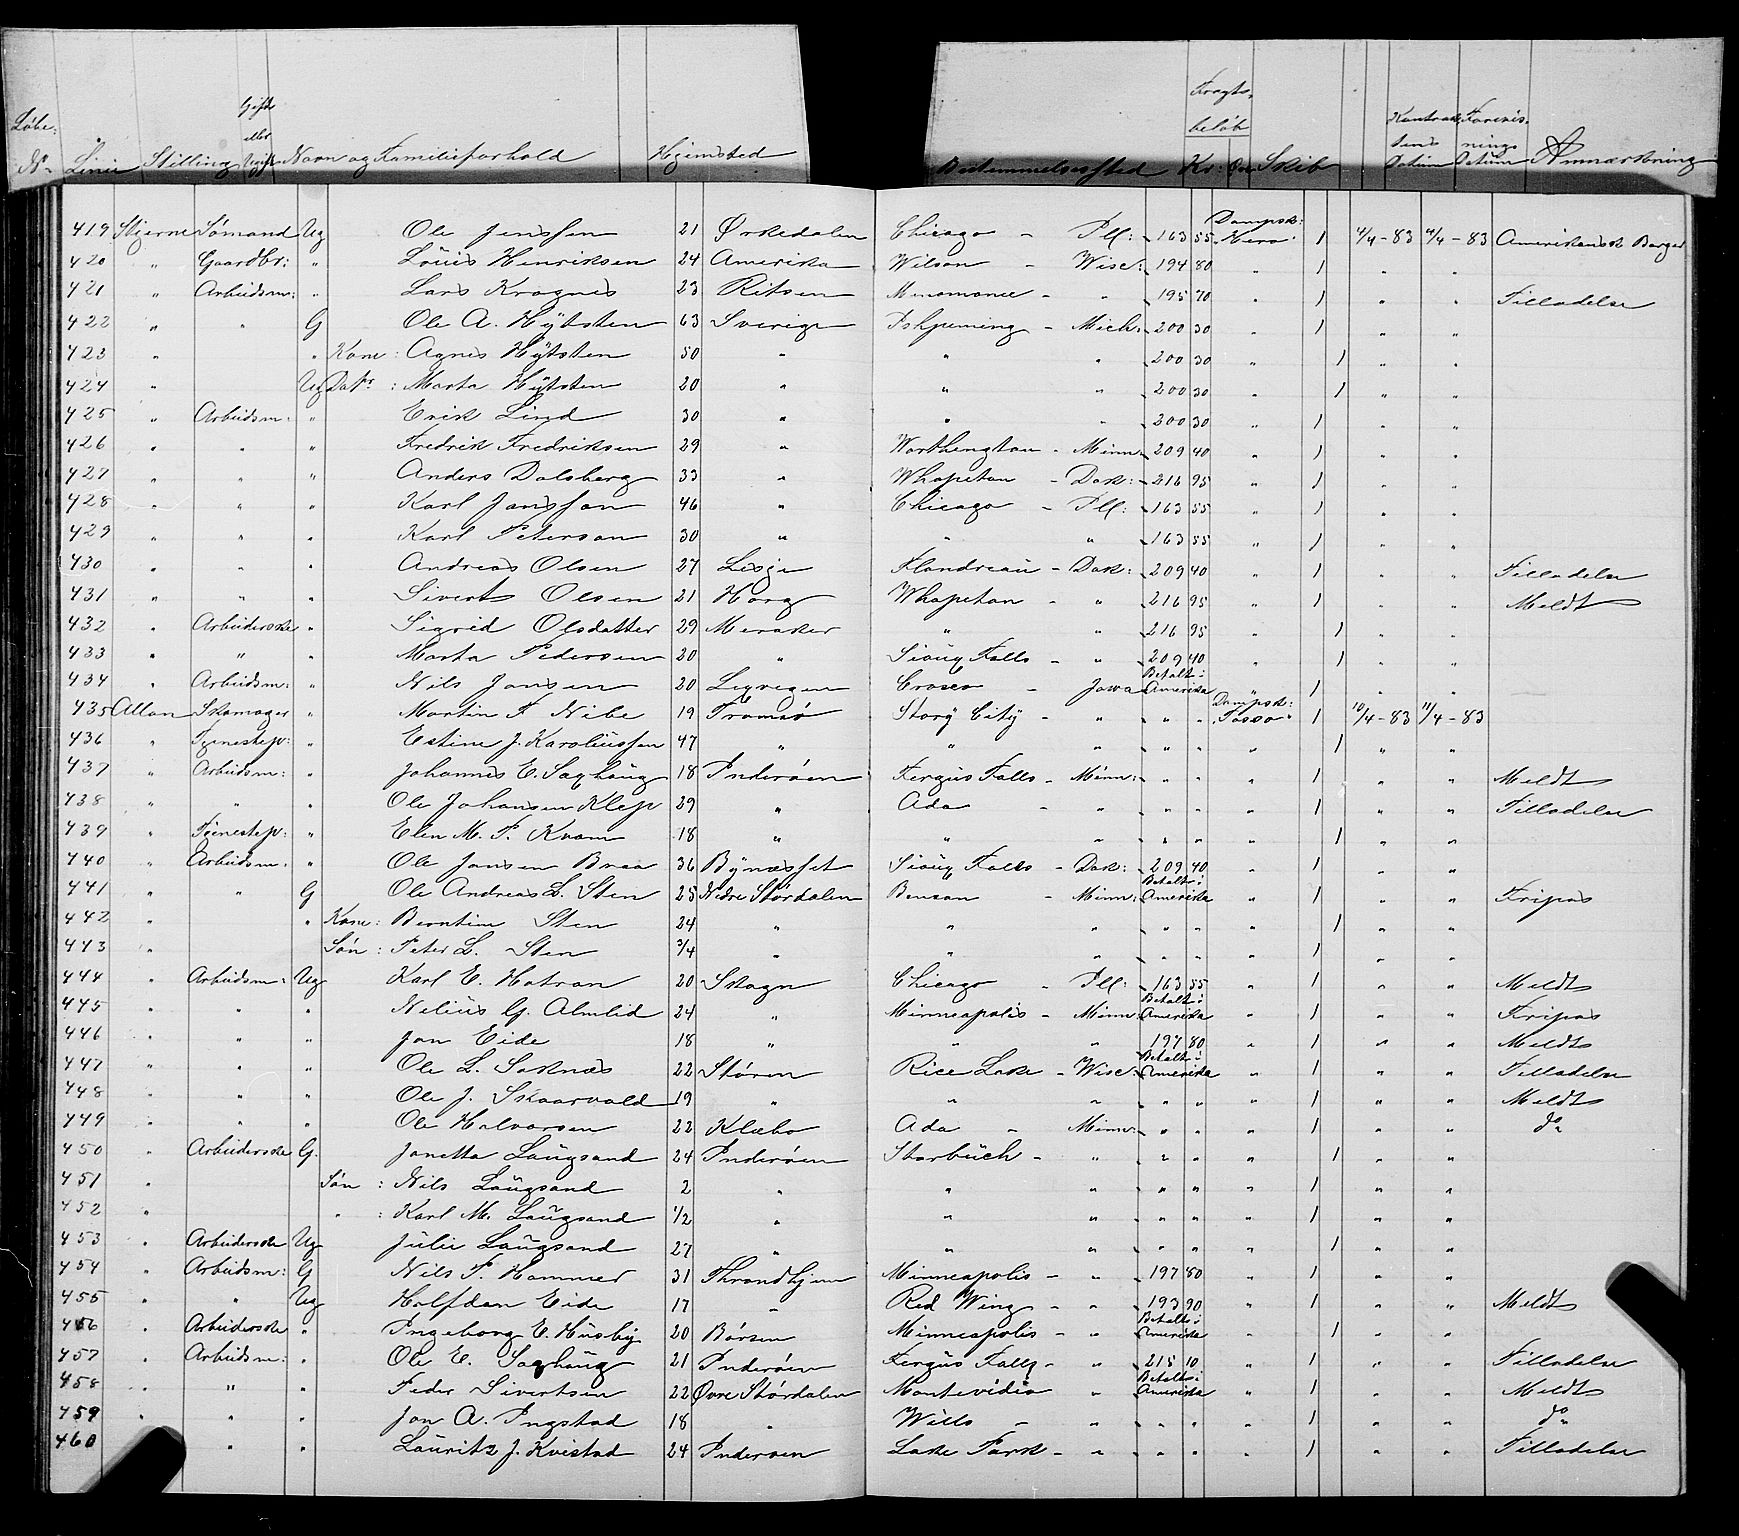 Løbe: Gift eller Fragts- Kontrak- Foreviis-
beløb tens nings
No Linie Stilling Ugift Navn og Familieforhold Hjemsted Bestemmelsessted Kr: Øre Skib Datum Datum Anmærkning
419 Stjerne Sømand Ug Ole Jenssen 21 Ørkedalen Chicago - Ill: 163 55 Dampsk: "Hero" 1 4/4-83 4/4-83 Amerikansk Borger
420 " Gaardbr: " Louis Henriksen 24 Amerika Wilson - Wisc: 194 80 " 1 " "
421 " Arbeidsm: " Lars Kragnes 23 Ritsen Menomonee - " 195 70 " 1 " " Tilladelse
422 " " G Ole A. Hytsten 63 Sverige Ishpeming - Mich: 200 30 " 1 " "
423 " " Kone: Agnes Hytsten 50 " " " 200 30 " 1 " "
424 " Ug Datr: Marta Hytsten 20 " " " 200 30 " 1 " "
425 " Arbeidsm: " Erik Lind 30 " " " 200 30 " 1 " "
426 " " " Fredrik Fredriksen 29 " Worthengton - Minn: 209 40 " 1 " "
427 " " " Anders Dalsberg 33 " Whapeton - Dak: 216 95 " 1 " "
428 " " " Karl Jansson 46 " Chicago - Ill: 163 55 " 1 " "
429 " " " Karl Peterson 30 " " " 163 55 " 1 " "
430 " " " Andreas Olsen 27 Lesje Flandreau - Dak: 209 40 " 1 " " Tilladelse
431 " " " Sivert Olsen 21 Horg Whapeton - " 216 95 " 1 " " Meldt
432 " Arbeiderske " Sigrid Olsdatter 29 Meraker " " 216 95 " 1 " "
433 " " " Marta Pedersen 20 " Sioux Falls - " 209 40 " 1 " "
434 " Arbeidsm: " Nils Jansen 20 Legvigen Cresco - Jowa Betalt i Amerika " 1 " "
435 Allan Skomager " Martin F. Nibe 19 Tromsø Story City - " " " Dampsk: "Tasso" 1 10/4-83 11/4-83
436 " Tjenestep: " Estine J. Karoliussen 47 " " " " " " 1 " "
437 " Arbeidsm: " Johannes E. Saxhaug 18 Inderøen Fergus Falls - Minn: " " " 1 " " Meldt
438 " " " Ole Johansen Klep 29 " Ada - " " " " 1 " " Tilladelse
439 " Tjenestep: " Elen M. T. Kvam 18 " " " " " " 1 " "
440 " Arbeidsm: " Ole Jansen Braa 36 Bynæsset Sioux Falls - Dak: 209 40 " 1 " "
441 " " G Ole Andreas L. Sten 25 Nedre Størdalen Benson - Minn: Betalt i Amerika " 1 " " Fripas
442 " " Kone: Berntine Sten 24 " " " " " 1 " "
443 " Søn: Peter L. Sten 3/4 " " " " " 1 " "
444 " Arbeidsm: Ug Karl E. Hatran 20 Skogn Chicago - Ill: 163 55 " 1 " " Meldt
445 " " " Nelius G. Almlid 24 " Minneapolis - Minn: Betalt i Amerika " 1 " " Fripas
446 " " " Jon Eide 18 " " " 197 80 " 1 " " Meldt
447 " " " Ole L. Soknæs 22 Støren Rice Lake - Wisc: Betalt i Amerika " 1 " " Tilladelse
448 " " " Ole J. Skaarvold 19 " " " " " " 1 " " Meldt
449 " " " Ole Halvorsen 22 Klæbo Ada " Minn: " " " 1 " " do
450 " Arbeiderske G. Janetta Laugsand 24 Inderøen Starbuch - " " " " 1 " "
451 " Søn: Nils Laugsand 2 " " " " " " 1 " "
452 " " : Karl M. Laugsand 1/2 " " " " " " 1 " "
453 " Arbeiderske Ug Julie Laugsand 27 " " " " " " 1 " "
454 " Arbeidsm: G Nils P. Hammer 31 Throndhjem Minneapolis - " 197 80 " 1 " "
455 " " Ug Halfdan Eide 17 " Red Wing - " 193 90 " 1 " " Meldt
456 " Arbeiderske " Ingeborg E. Husby 20 Børsen Minneapolis - " Betalt i Amerika " 1 " "
457 " Arbeidsm: " Ole E. Saxhaug 21 Inderøen Fergus Falls - " 215 10 " 1 " " Tilladelse
458 " " " Peder Sivertsen 22 Øvre Størdalen Montevideo " Betalt i Amerika " 1 " " Meldt
459 " " " Jon A. Ingstad 18 " Wills - " " " " 1 " " do
460 " " Lauritz J. Kvistad 24 Inderøen Lake Park - " " " " 1 " " Tilladelse